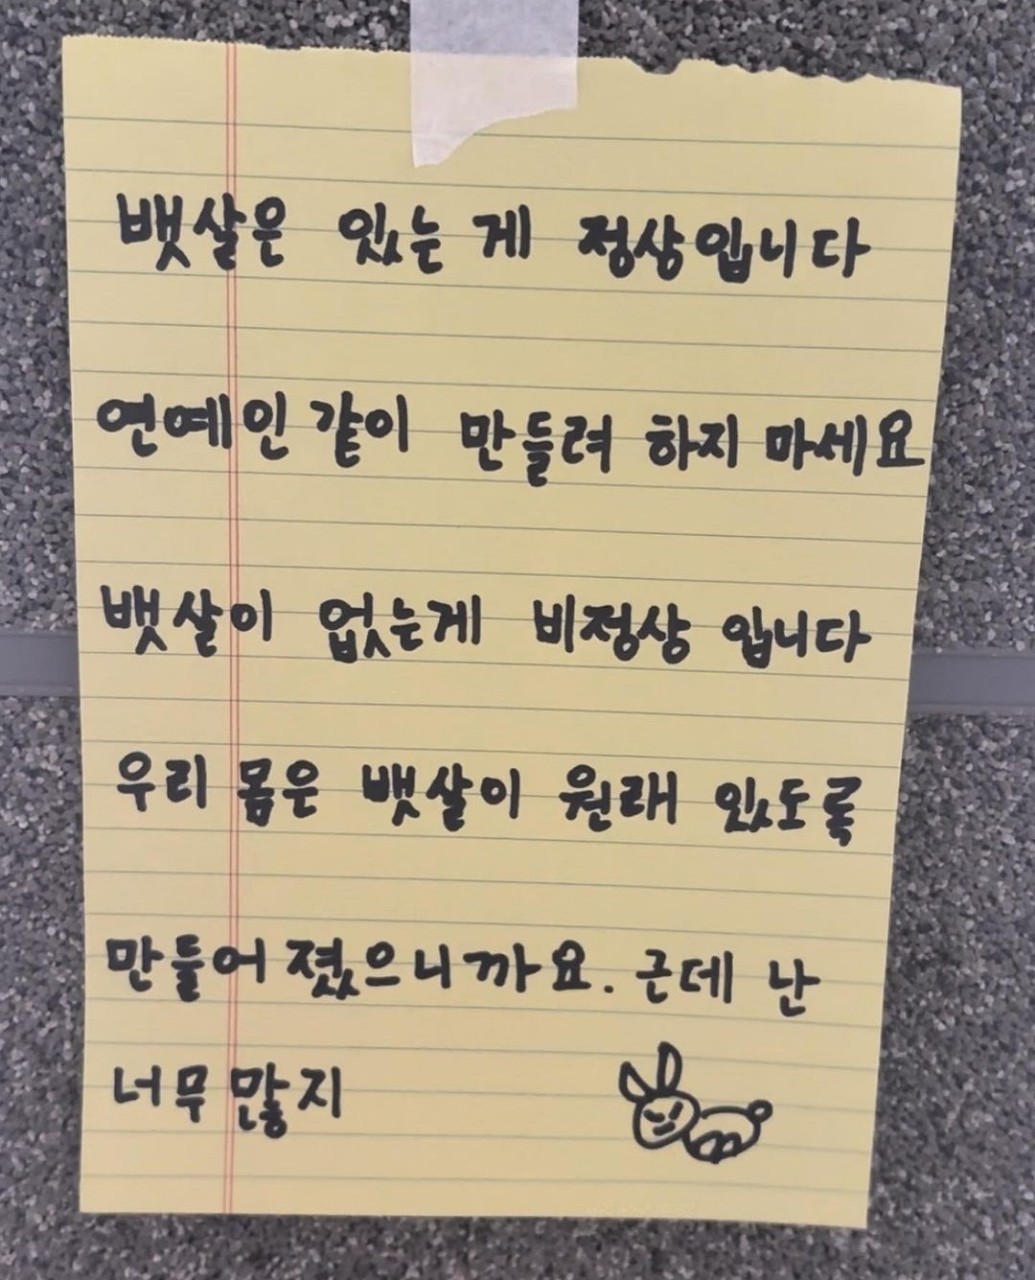 뱃살은 있는 게 정상입니다
연예인 같이 만들려 하지 마세요
뱃살이 없는게 비정상 입니다
우리 몸은 뱃살이 원래 있도록
만들어 졌으니까요. 근데 난
너무 많지